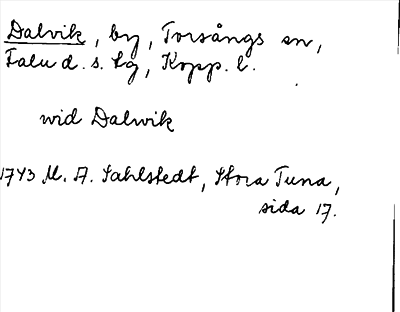 Dalvik, by, Torsångs sn,
Falu d. s. lg, Kopp. l.
wid Dalwik
1743 M. A. Sahlstedt, Stora Tuna,
sida 17.